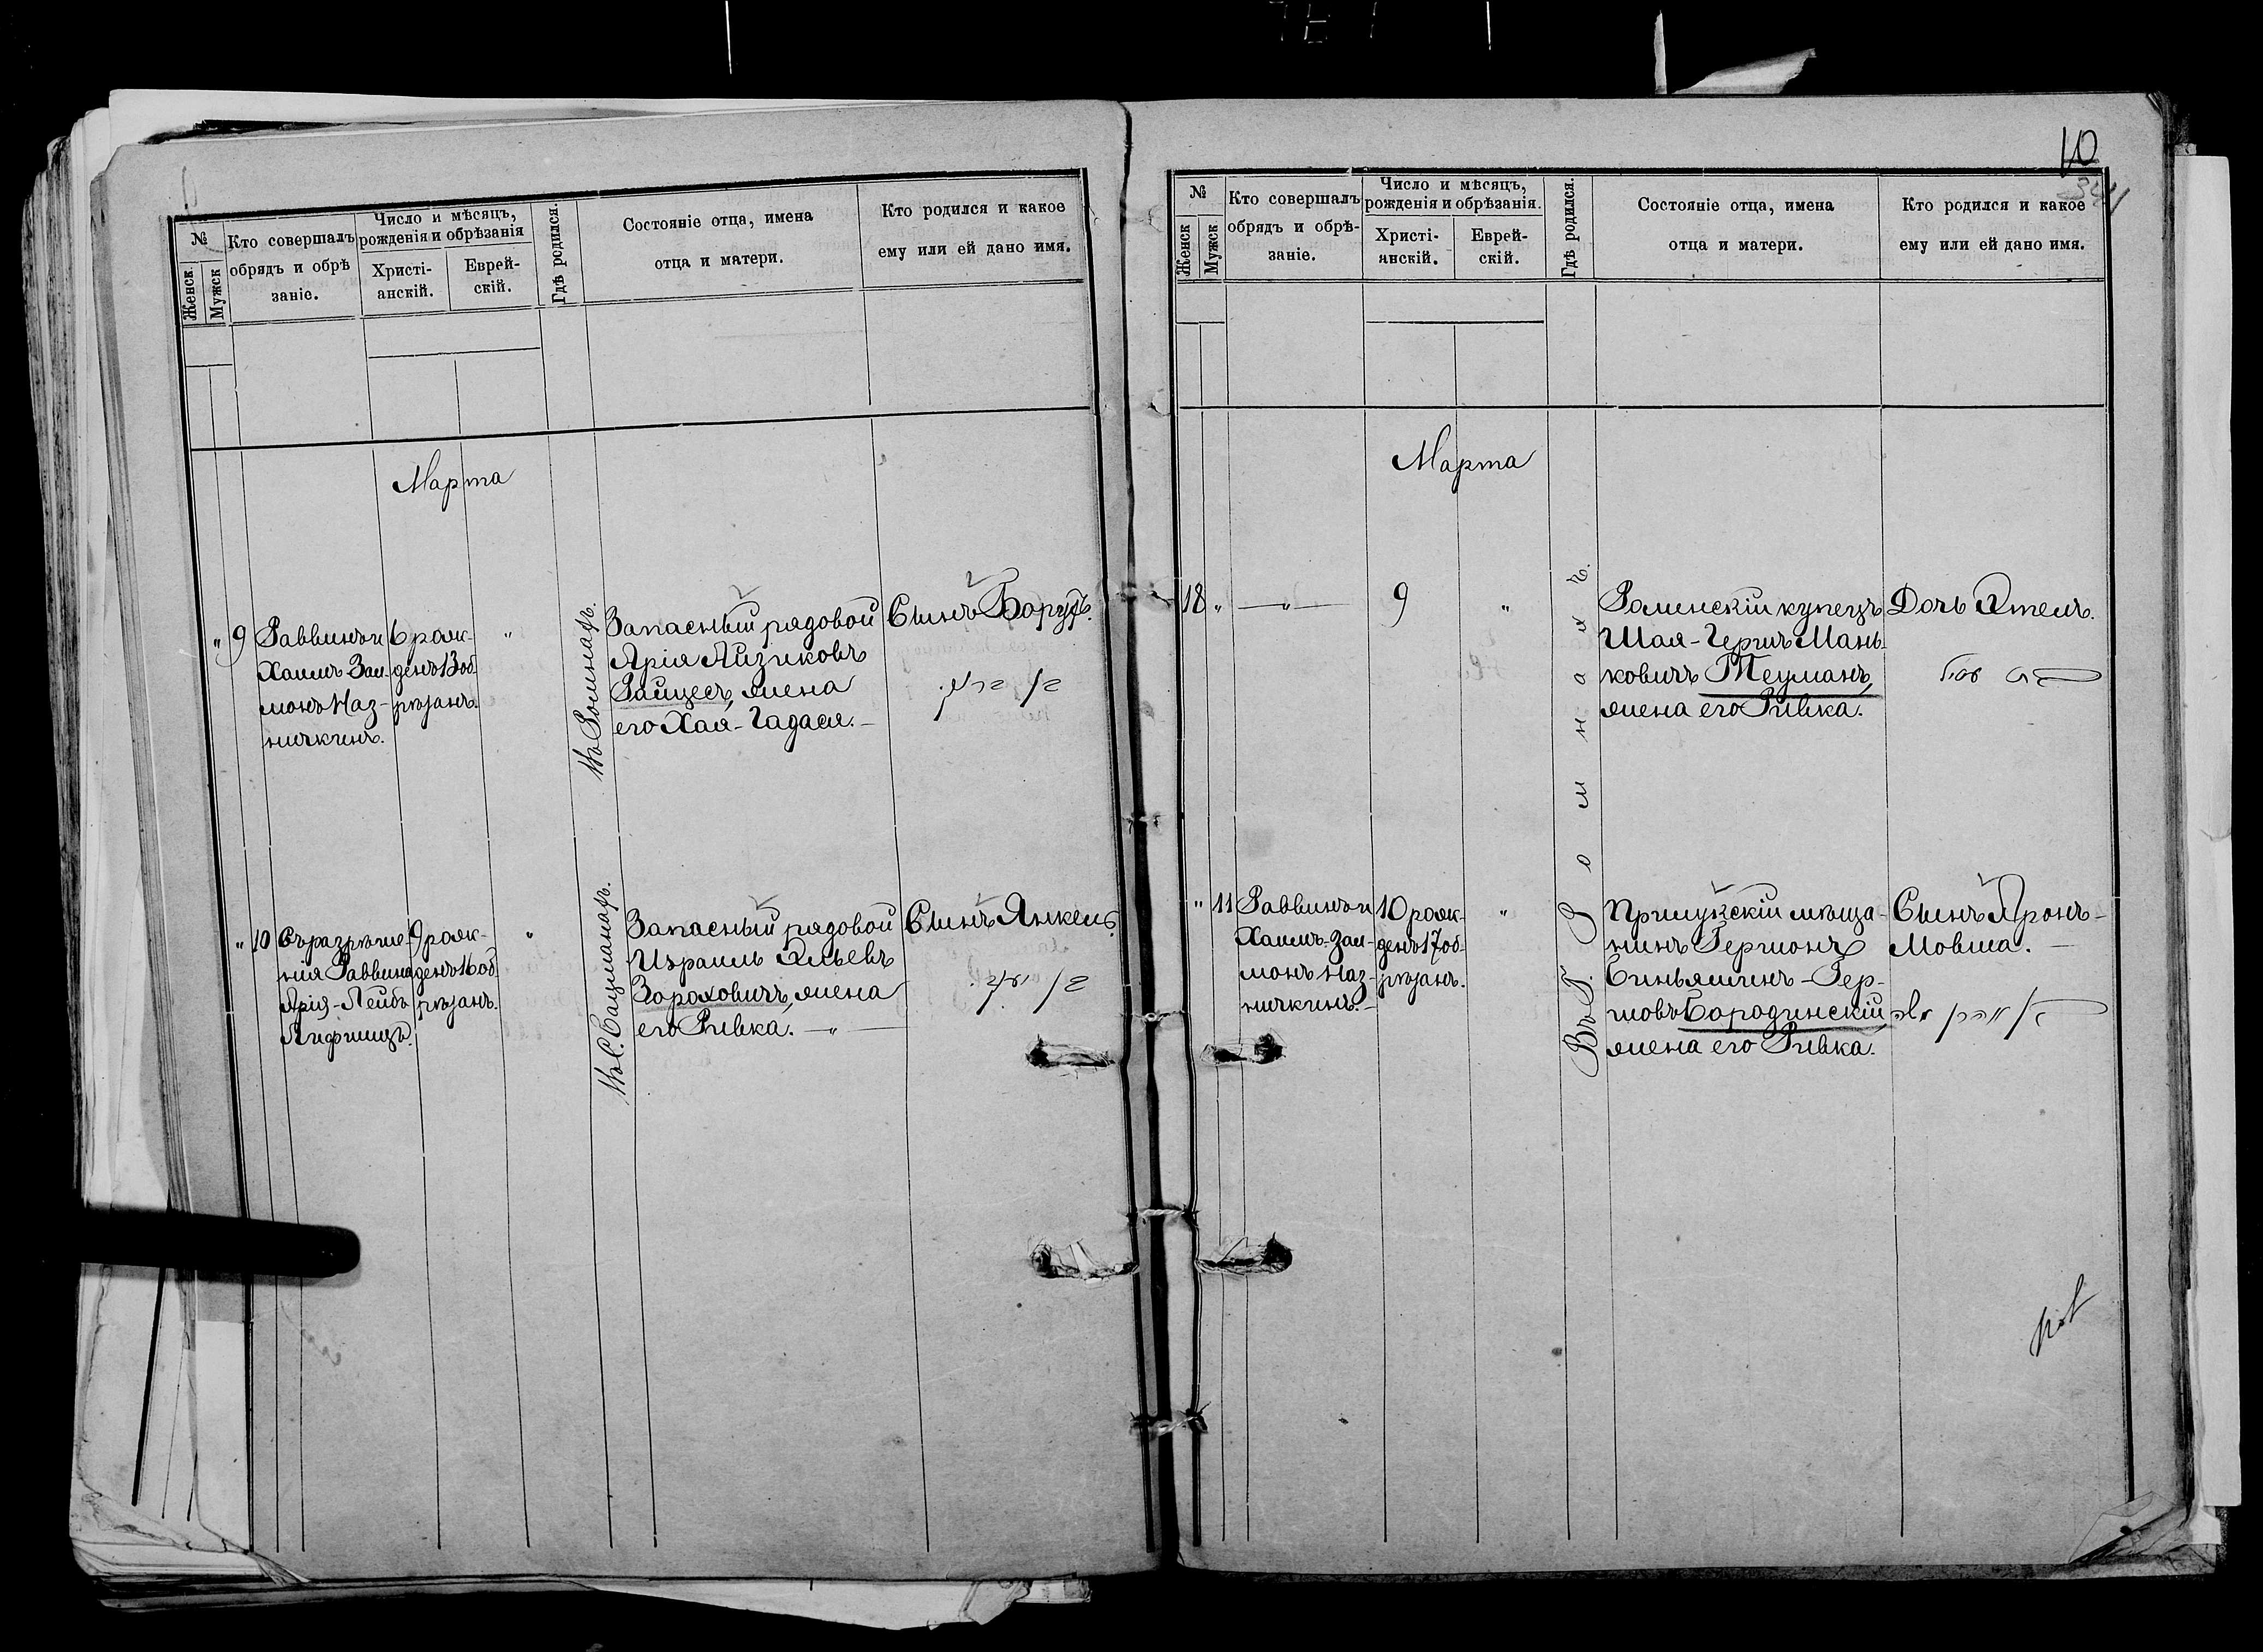 №
Женск
Мужск
Кто совершалъ
обрядъ и обрѣ
заніе.
Число и мѣсяцъ,
рожденія и обрѣзанія
Христі-
анскій.
Еврей-
скій.
Гдѣ родился.
Состояніе отца, имена
отца и матери.
Кто родился и какое
ему или ей дано имя.
Марта
" 9
Раввинъ и
Хаимъ Зал-
монъ Наз-
ничкинъ.
6 рож-
денъ 13 об
рѣзанъ.
"
въ Ромнахъ.
Запасный рядовой
Арія Айзиковъ
Райцесъ, жена
его Хая-Гадася.
Сынъ Борухъ.
בן ברוך
" 10
Съ разрѣше-
нія Раввина
Арія-Лейбъ
Лифшицъ.
9 рож-
денъ 16 об
рѣзанъ.
"
Запасный рядовой
Израиль Хаьевъ
Зороховичъ, жена
его Ривка. — " —
Сынъ Янкель.
בן יעקב
10
344
№
Женск
Мужск
Кто совершалъ
обрядъ и обрѣ-
заніе.
Число и мѣсяцъ,
рожденія и обрѣзанія.
Христі-
анскій.
Еврей-
скій.
Гдѣ родился.
Состояніе отца, имена
отца и матери.
Кто родился и какое
ему или ей дано имя.
Марта
18 "
— " —
9
"
Въ Г. Ромнахъ.
Роменскій купецъ
Шая-Герцъ Мань-
ковичъ Теуманъ,
жена его Ривка.
Дочь Этель.
בת
" 11
Раввинъ и
Хаимъ-Зал-
монъ Наз-
ничкинъ.
10 рож-
денъ 17 об-
рѣзанъ.
"
Прилукскій мѣща-
нинъ Гершонъ
Биньяминъ-Гер-
шовъ Бородинскій,
жена его Ривка.
Сынъ Аронъ-
Мовша.
בן אהרן משה